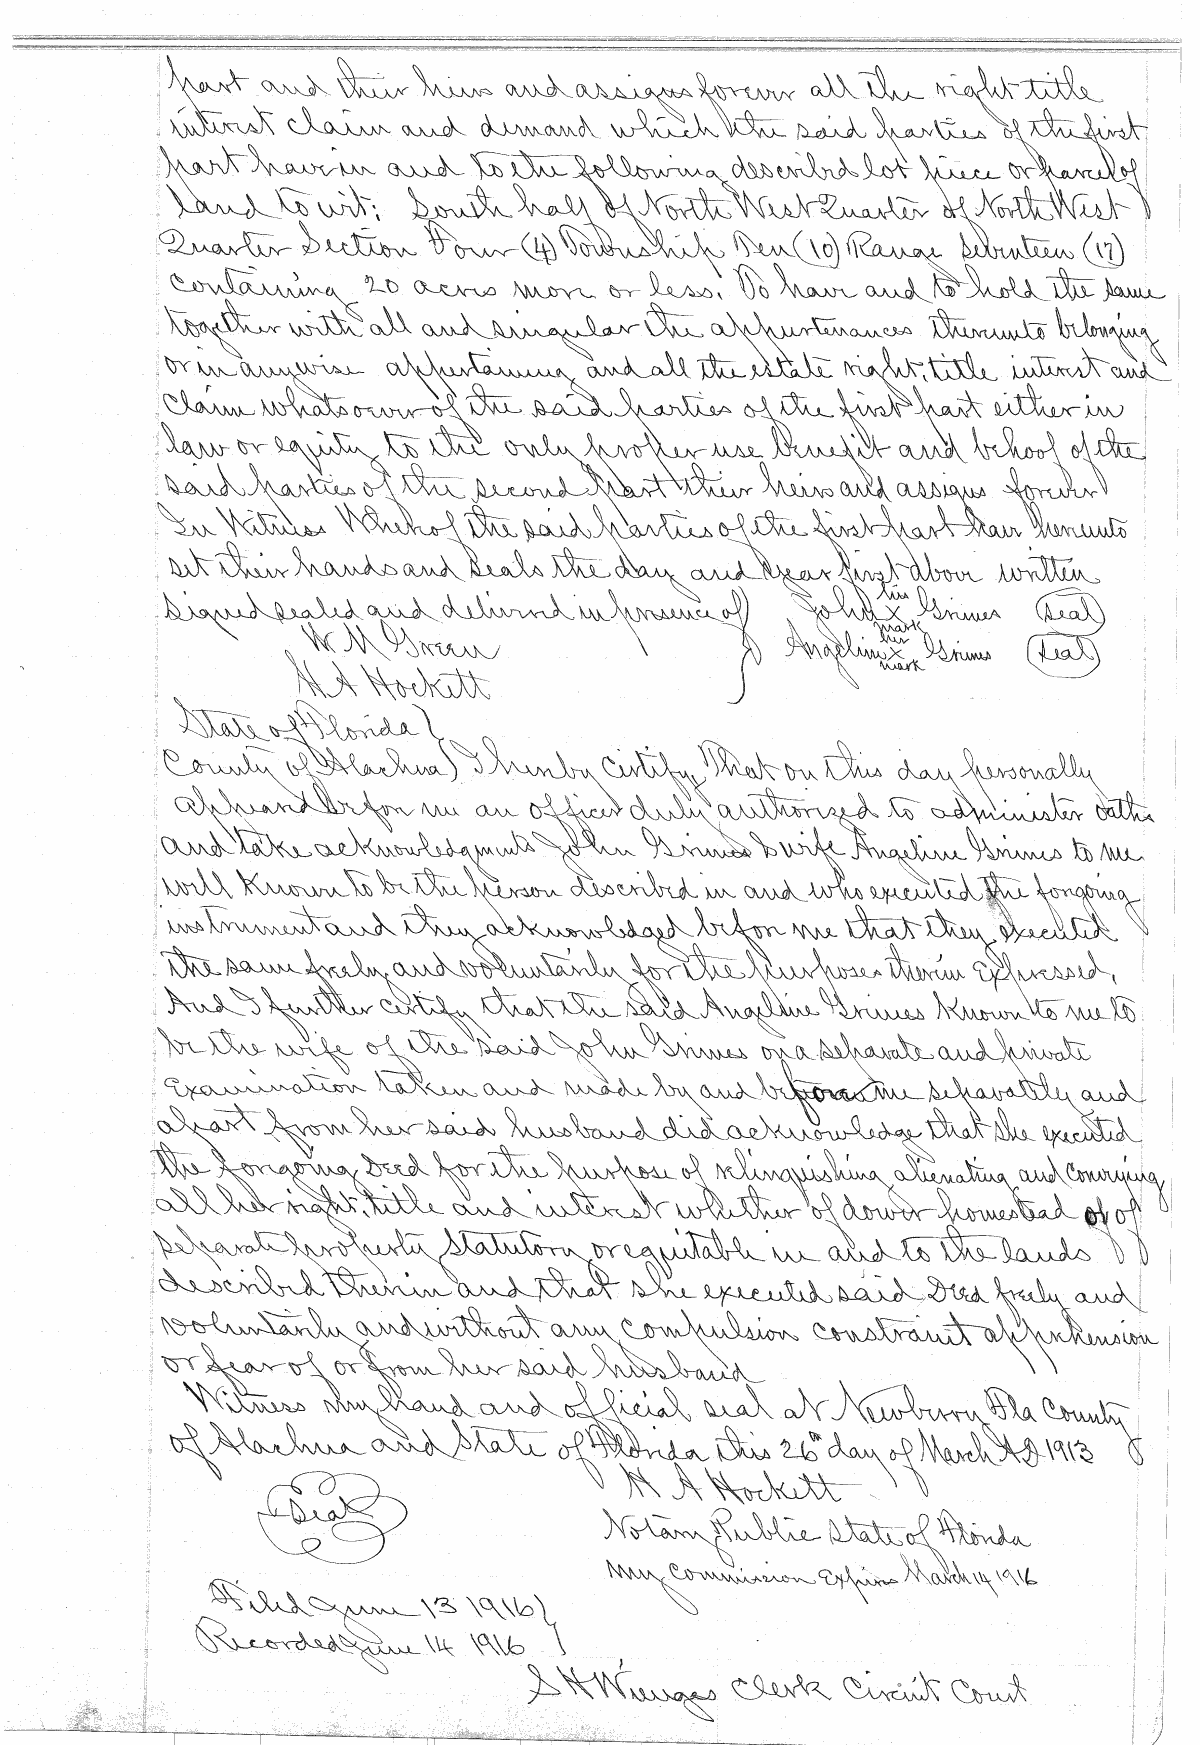 part and their heirs and assigns forever all the right title
interest claim and demand which the said parties of the first
part have in and to the following described lot piece or parcel of
land to wit; South half of North West Quarter of North West
Quarter Section Four (4) Township Ten (10) Range Seventeen (17)
containing 20 acres more or less. To have and to hold the same
together with all and singular the appurtenances thereunto belonging
or in anywise appertaining and all the estate right, title interest and
claim whatsoever of the said parties of the first part either in
law or equity to the only proper use benefit and behoof of the
said parties of the second part their heirs and assigns forever
In Witness Wherof the said parties of the first part have hereunto
set their hands and seals the day and year first above written
Signed sealed and delivered in presence of John his x mark Grimes (Seal)
W M Green Angeline her x mark Grimes (Seal)
H A Hockett
State of Florida }
County of Alachua ) I hereby certify, That on this day personally
appeared before me an officer duly authorized to administer oaths
and take acknowledgments John Grimes & wife Angeline Grimes to me
well known to be the person described in and who executed the forgoing
instrument and they acknowledged before me that they executed
the same freely and voluntarily for the purposes therein expressed,
And I further certify that the said Angeline Grimes known to me to
be the wife of the said John Grimes on a separate and private
examination taken and made by and before me separately and
apart from her said husband did acknowledge that she executed
the forgoing Deed for the purpose of relinquishing alienating and conveying
all her right, title and interest whether of dower homestead or of
separate property statutory or equitable in and to the lands
described therein and that she executed said Deed freely and
voluntarily and without any compulsion constraint apprehension
or fear of or from her said husband
Witness my hand and official seal at Newberry Fla County
of Alachua and State of Florida this 26th day of March A D 1913
H A Hockett
(Seal)
Notary Public State of Florida
My commission Expires March 14 1916
Filed June 13 1916 }
Recorded June 14 1916
S H Wienges Clerk Circuit Court